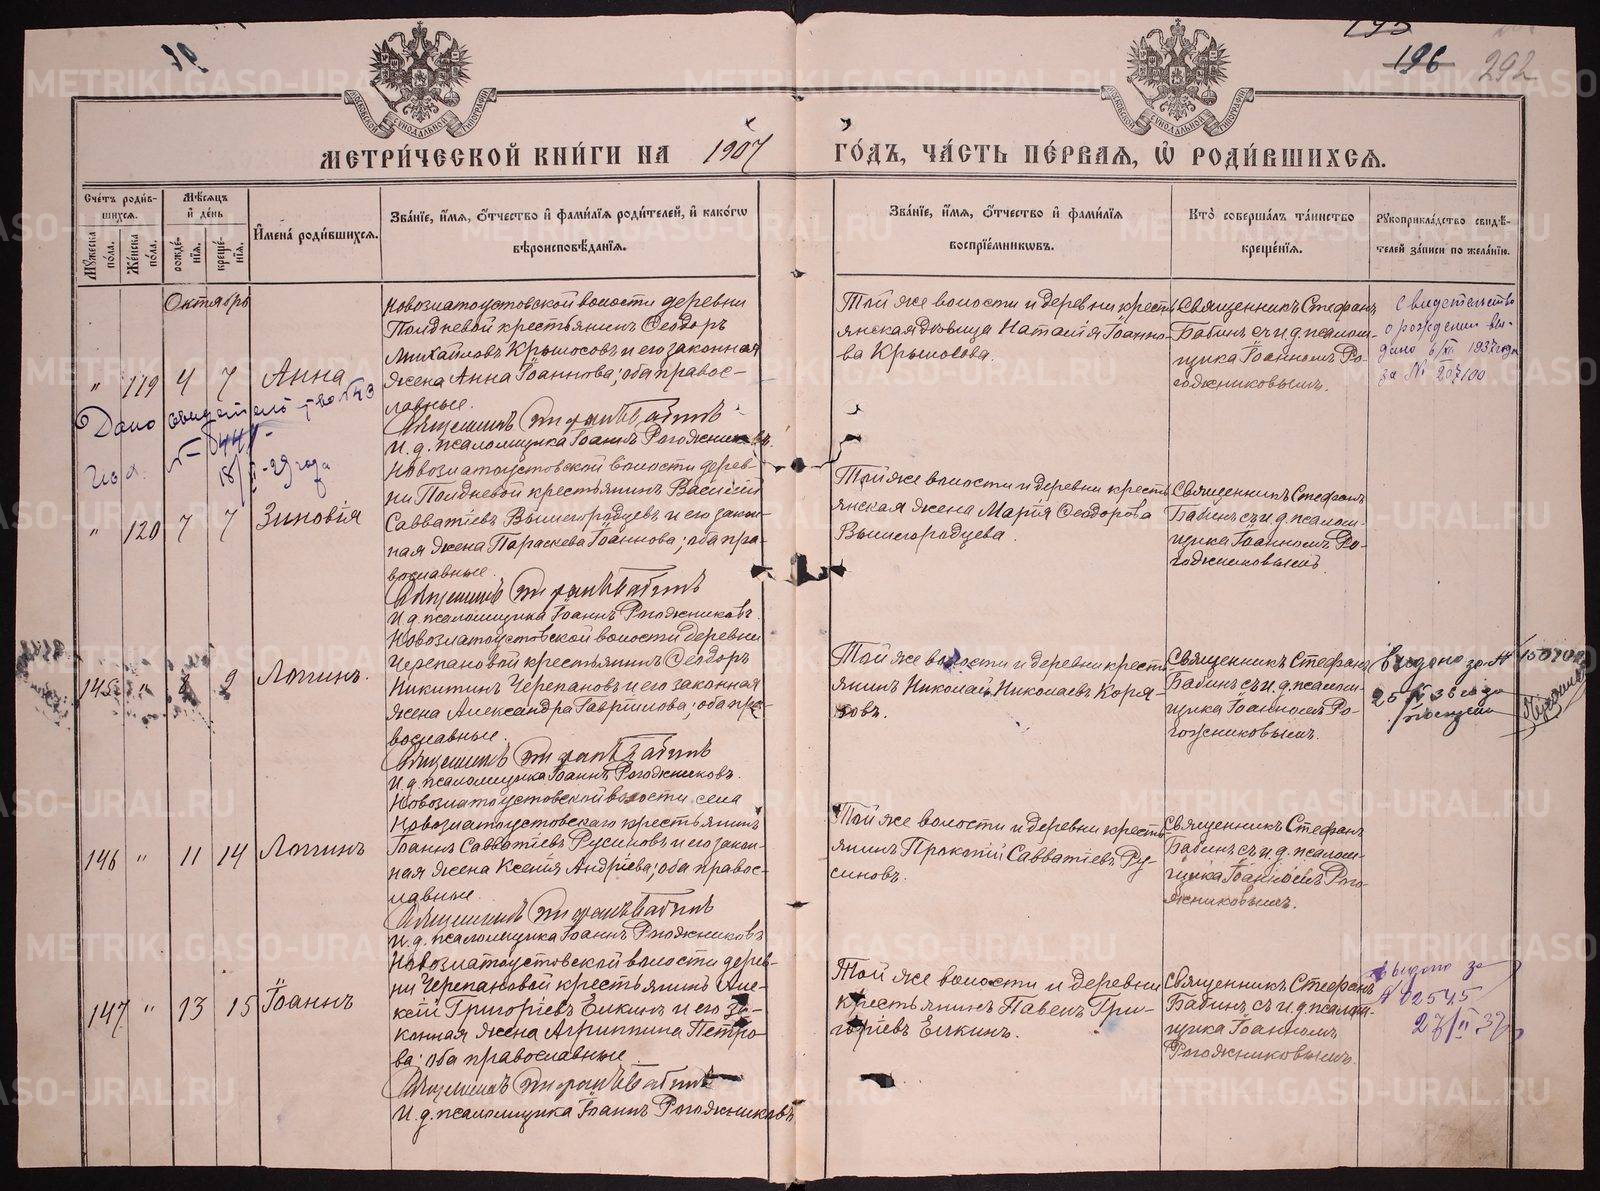 195
196
292
МОСКОВСКОЙ СѴНОДАЛЬНОЙ ТИПОГРАФІИ
МОСКОВСКОЙ СѴНОДАЛЬНОЙ ТИПОГРАФІИ
МЕТРИ́ЧЕСКОЙ КНИ́ГИ НА 1907 ГО́ДЪ, ЧА́СТЬ ПЕ́РВАЯ, Ѡ҆ РОДИ́ВШИХСЯ.
Сче́тъ роди́вшихся.
Мꙋ́жеска по́ла.
Же́нска по́ла.
Мѣ́сяцъ и҆ де́нь
рожде́нїя.
креще́нїя.
И҆мена̀ роди́вшихся.
Зва́нїе, и҆́мя, ѻ҆́тчество и҆ фами́лїя роди́телей, и҆ како́гѡ
вѣроисповѣ́данїя.
Зва́нїе, и҆́мя, ѻ҆́тчество и҆ фами́лїя
воспрїе́мникѡвъ.
Кто̀ соверша́лъ та́инство
креще́нїя.
Рꙋкоприкла́дство свидѣ́-
телей за́писи по жела́нїю.
Октябрь
„ 119 4 7 Анна
Новозлатоустовской волости деревни
Полдневой крестьянинъ Ѳеодоръ
Михайловъ Крылосовъ и его законная
жена Анна Іоаннова; оба правос-
лавные.
Священникъ Стефанъ Бабинъ
И. д. псаломщика Іоаннъ Рогожниковъ.
Той же волости и деревни кресть
янская дѣвица Наталія Іоанно-
ва Крылосова.
Священникъ Стефанъ
Бабинъ съ и. д. псалом-
щика Іоанномъ Ро-
гожниковымъ.
Свидетельство
о рождении вы-
дано 6/XII 1937 года
за № 207100
Дано свидетельство
18/II-29 года
„ 120 7 7 Зиновія
Новозлатоустовской волости дерев-
ни Полдневой крестьянинъ Василій
Савватіевъ Вышегородцевъ и его закон-
ная жена Параскева Іоаннова; оба пра-
вославные.
Священникъ Стефанъ Бабинъ
И. д. псаломщика Іоаннъ Рогожниковъ.
Той же волости и деревни кресть
янская жена Марія Ѳеодорова
Вышегородцева.
Священникъ Стефанъ
Бабинъ съ и. д. псалом-
щика Іоанномъ Ро-
гожниковымъ
145 „ 9 Логгинъ.
Новозлатоустовской волости деревни
Черепановой крестьянинъ Ѳеодоръ
Никитинъ Черепановъ и его законная
жена Александра Гавріилова; оба пра-
вославные.
Священникъ Стефанъ Бабинъ
И. д. псаломщика Іоаннъ Рогожниковъ.
Той же волости и деревни кресть
янинъ Николай Николаевъ Коря-
ковъ.
Священникъ Стефанъ
Бабинъ съ и. д. псалом-
щика Іоанномъ Ро-
гожниковымъ.
Выдано за №
36 года
146 „ 11 14 Логгинъ
Новозлатоустовской волости села
Новозлатоустовскаго крестьянинъ
Іоаннъ Савватіевъ Русиновъ и его закон-
ная жена Ксенія Андріева; оба правос-
лавные
Священникъ Стефанъ Бабинъ
И. д. псаломщика Іоаннъ Рогожниковъ
Той же волости и деревни кресть
янинъ Прокопій Савватіевъ Ру-
синовъ.
Священникъ Стефанъ
Бабинъ съ и. д. псалом-
щика Іоанномъ Рого-
жниковымъ.
147 „ 13 15 Іоаннъ
Новозлатоустовской волости дерев-
ни Черепановой крестьянинъ Але-
ксій Григоріевъ Елкинъ и его за-
конная жена Агриппина Петро-
ва; оба православные.
Священникъ Стефанъ Бабинъ
И. д. псаломщика Іоаннъ Рогожниковъ
Той же волости и деревни
крестьянинъ Павелъ Гри-
горіевъ Елкинъ.
Священникъ Стефанъ
Бабинъ съ и. д. псалом-
щика Іоанномъ
Рогожниковымъ
Выдано за
№ 02545
27/II 37
METRIKI.GASO-URAL.RU